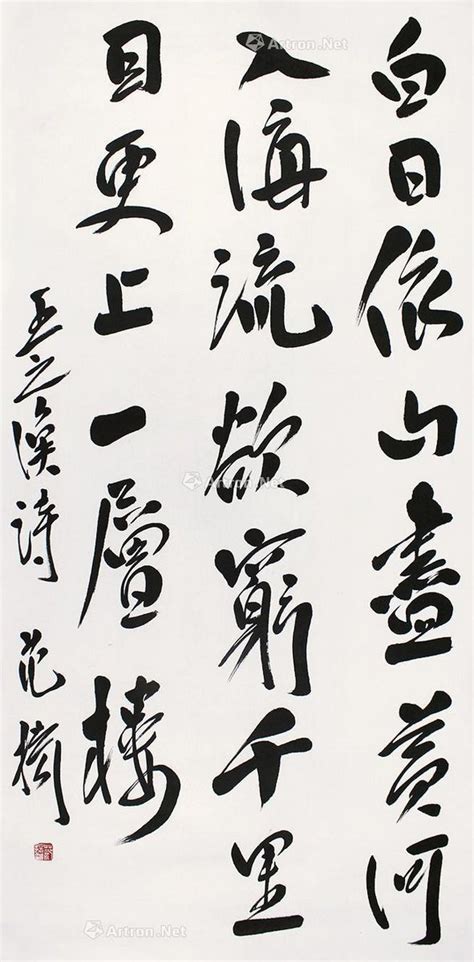 白日依山盡黃河
入海流欲窮千里
目更上一層樓
王之渙詩 范
Artron.Net
Artron.Net
Artron.Net